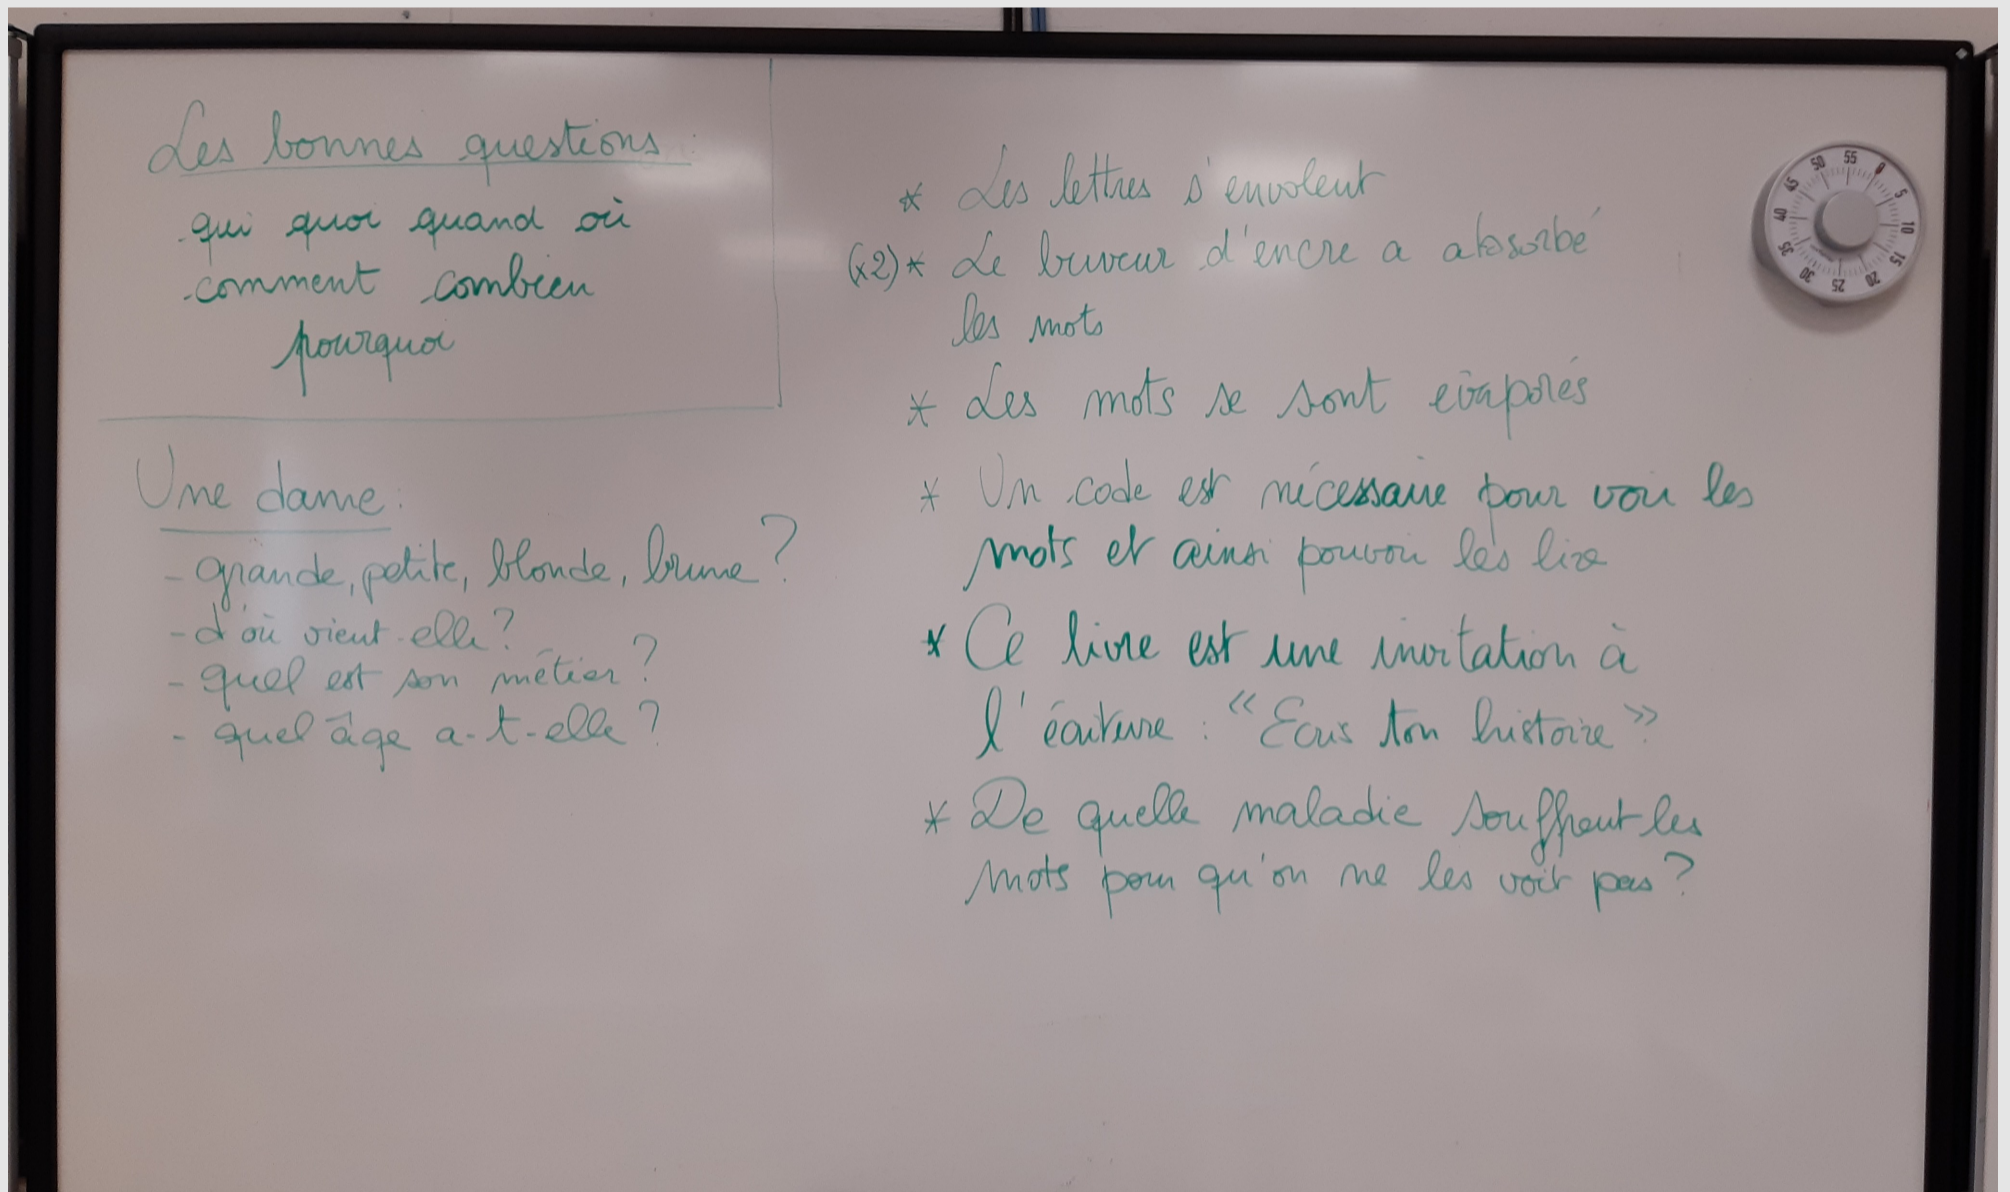 Les bonnes questions :
- qui quoi quand où
- comment combien
pourquoi
Une dame :
- grande, petite, blonde, brune ?
- d'où vient-elle ?
- quel est son métier ?
- quel âge a-t-elle ?
* Les lettres s'envolent
(x2) * Le buveur d'encre a absorbé
les mots
* Les mots se sont évaporés
* Un code est nécessaire pour voir les
mots et ainsi pouvoir les lire
* Ce livre est une invitation à
l'écriture : “Ecris ton histoire”
* De quelle maladie souffrent les
mots pour qu'on ne les voit pas ?
0
5
10
15
20
25
30
35
40
45
50
55